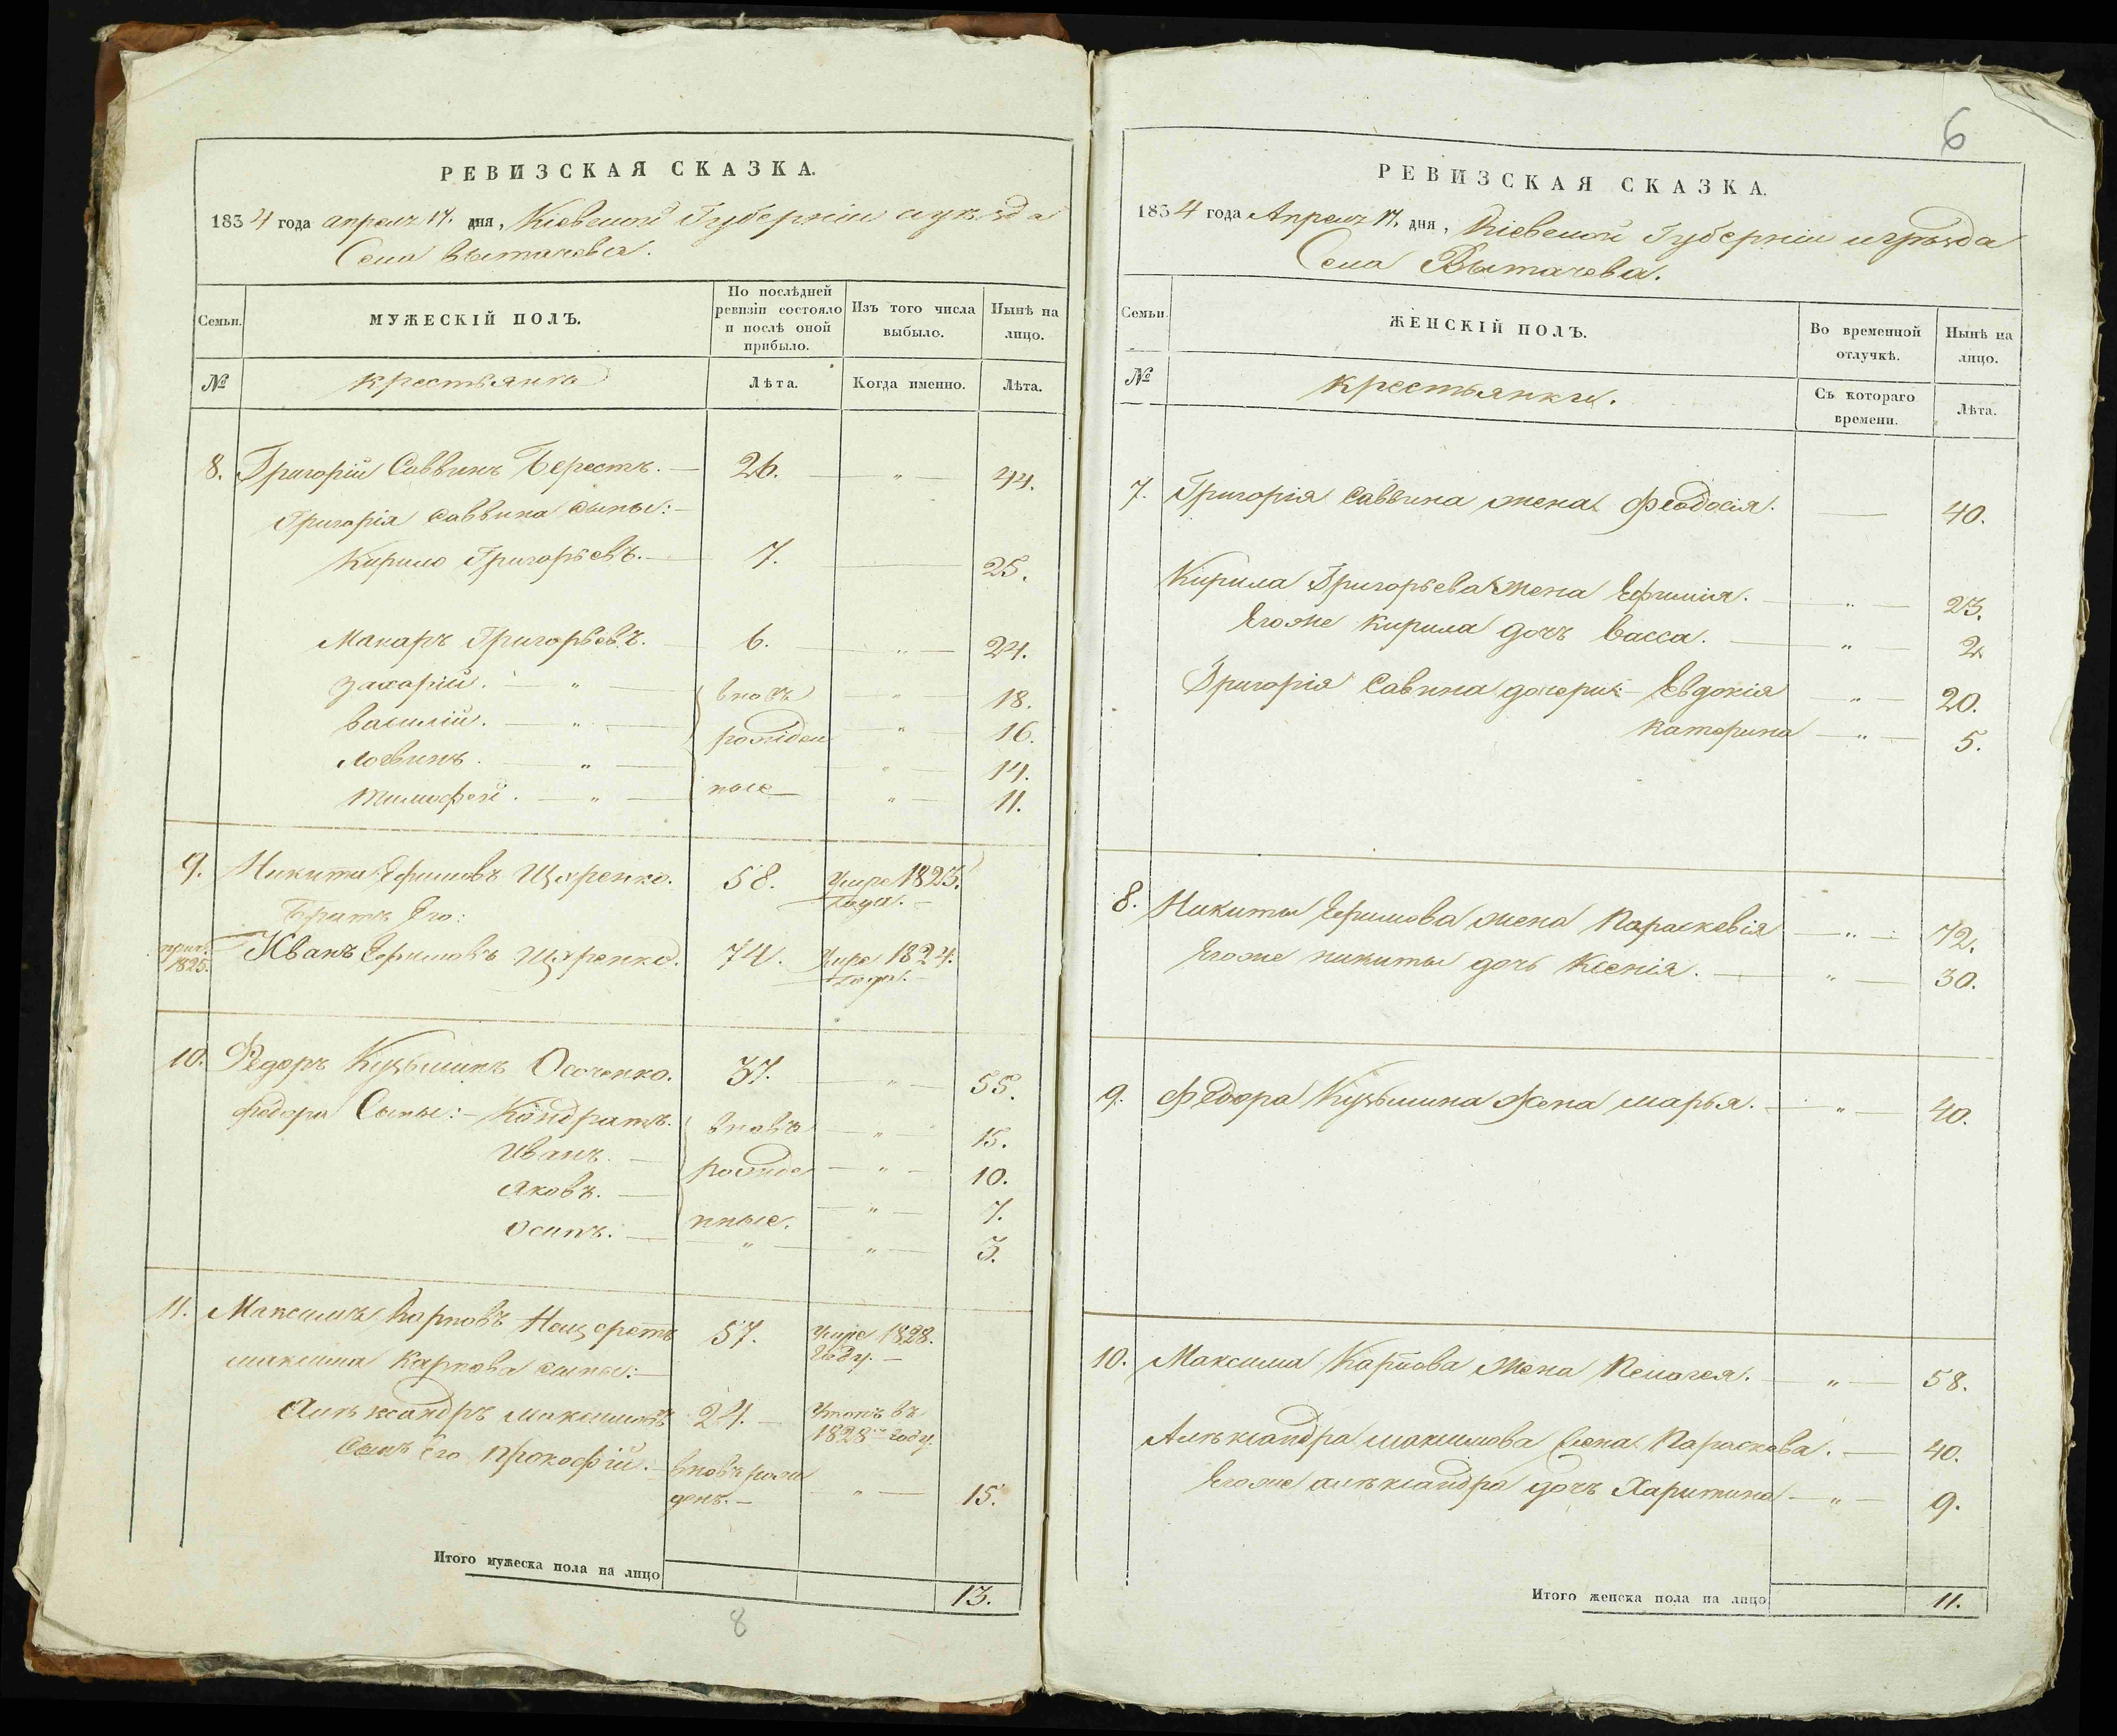 РЕВИЗСКАЯ СКАЗКА.
1834 года апреля 17. дня, Кіевской Губерніи и уѣзда
Села Вытачева.
Семьи.
МУЖЕСКІЙ ПОЛЪ.
По послѣдней ревизіи состояло и послѣ оной прибыло.
Изъ того числа выбыло.
Нынѣ на лицо.
№
крестьяне
Лѣта.
Когда именно.
Лѣта.
8. Григорій Саввинъ Берестъ. — 26. — „ — 44.
Григорія Саввина сыны: —
Кирило Григорьевъ. — 7. — 25.
Макаръ Григорьевъ. — 6. — „ — 24.
Захарій. — „ — вновь — „ — 18.
Василій. — „ — рожден — „ — 16.
Логвинъ. — „ — „ — 14.
Тимофей. — „ — ные — „ — 11.
9. Никита Ефимовъ Щуренко. 58. Умре 1823.
года. —
Братъ Его:
1825. Иванъ Ефимовъ Щуренко. 74. Умре 1824.
года. —
10. Федоръ Кузьминъ Осоченко. 37. — „ — 55.
Федора Сыны: — Кондратъ. вновь — „ — 15.
Иванъ. — рожде — „ — 10.
Яковъ. — нные. — „ — 7.
Осипъ. — „ — „ — 3.
11. Максимъ Карповъ 57. Умре 1828.
году. —
максима Карпова сыны: —
Алѣксандръ максимовъ 24. — Утопъ въ
1828м году.
Сынъ Его Прокофій. — вновь рож
денъ. — „ — 15.
Итого мужеска пола на лицо 13.
8
6
РЕВИЗСКАЯ СКАЗКА.
1834 года Апреля 17. дня, Кіевской Губерніи и уѣзда
Села Вытачева.
Семьи.
ЖЕНСКІЙ ПОЛЪ.
Во временной отлучкѣ.
Нынѣ на лицо.
№
крестьянки.
Съ котораго времени.
Лѣта.
7. Григорія Саввина жена Феодосія. — 40.
Кирила Григорьева жена Ефимія. — „ — 23.
Егоже Кирила дочь Васса. — „ — 2.
Григорія Савина дочери: — Евдокія — „ — 20.
Катерина — „ — 5.
8. Никиты Ефимова жена Параскевія — „ — 72.
Егоже никиты дочь Ксенія. — „ — 30.
9. Федора Кузьмина Жена марья. — „ — 40.
10. Максима Карпова жена Пелагея. — „ — 58.
Алѣксандра максимова жена Параскева. — 40.
Егоже алѣксандра дочь Харитина — „ — 9.
Итого женска пола на лицо 11.